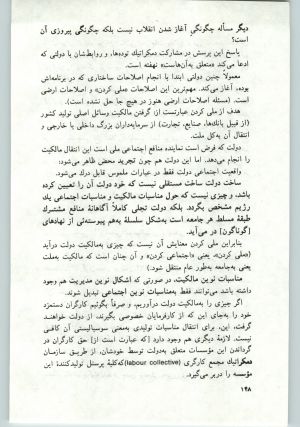 دیگر مسأله چگونگی آغاز شدن انقلاب نیست بلکه چگونگی پیروزی آن
است؟
پاسخ این پرسش در مشارکت دمکراتیک توده‌ها، و روابط‌شان با دولتی که
ادعا می‌کند «متعلق به‌آن‌هاست» نهفته است.
معمولاً چنین دولتی ابتدا با انجام اصلاحات ساختاری که در برنامه‌اش
بوده، آغاز می‌کند. مهم‌ترین این اصلاحات «ملی کردن» و اصلاحات ارضی
است. (مسئله اصلاحات ارضی هنوز در هیچ جا حل نشده است).
هدف از ملی کردن عبارتست از: گرفتن مالکیت وسائل اصلی تولید کشور
(از قبیل بانک‌ها، صنایع، تجارت) از سرمایه‌داران بزرگ داخلی یا خارجی و
انتقال آن به‌کل ملت.
دولت که فرض است نماینده منافع اجتماعی ملی است این انتقال مالکیت
را انجام می‌دهد. اما این دولت هم چون تجرید محض ظاهر می‌شود؛
واقعیت اجتماعی دولت فقط در عبارات ملموس قابل درک می‌شود.
ساخت دولت ساخت مستقلی نیست که خود دولت آن را تعیین کرده
باشد، و چیزی نیست که حول مناسبات مالکیت و مناسبات اجتماعی یک
رژیم مشخص بگردد. بلکه دولت تجلی کاملاً آگاهانهٔ منافع مشترک
طبقهٔ مسلط هر جامعه است به‌شکل سلسلهٔ به‌هم پیوسته‌ئی از نهادهای
[گوناگون] در می‌آید.
بنابراین ملی کردن معنایش آن نیست که چیزی به‌مالکیت دولت درآید
(ملی کردن» یعنی «اجتماعی کردن» و آن چنان است که مالکیت به‌ملت
یعنی به‌جامعه به‌طور عام منتقل شود.)
مناسبات نوین مالکیت، در صورتی که اشکال نوین مدیریت هم وجود
داشته باشد می‌توانند فقط به‌مناسبات نوین اجتماعی تبدیل شوند.
اگر چیزی را به‌مالکیت دولت درآوریم، و صرفاً بگوئیم کارگران دستمزد
خود را به‌جای این که از کارفرمایان خصوصی بگیرند، از دولت خواهند
گرفت، این، برای انتقال مناسبات تولیدی به‌معنی سوسیالیستی آن کافی
نیست. لازمهٔ دیگری هم وجود دارد [که عبارت است از] حق کارگران در
گرداندن این مؤسسات متعلق به‌دولت توسط خودشان، از طریق سازمان
دمکراتیک مجمع کارگری (labour collective) (که‌کلیهٔ پرسنل تولیدکنندهٔ این
مؤسسه را دربر می‌گیرد.
۱۴۸